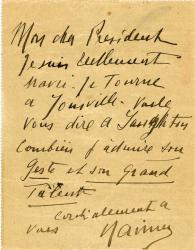 Mon cher President
Je suis réellement
navré. Je Tourne
à Joinville. Veuillez
vous dire à
combien j'admire son
Geste et son Grand
Talent
cordialement a
vous Raimu